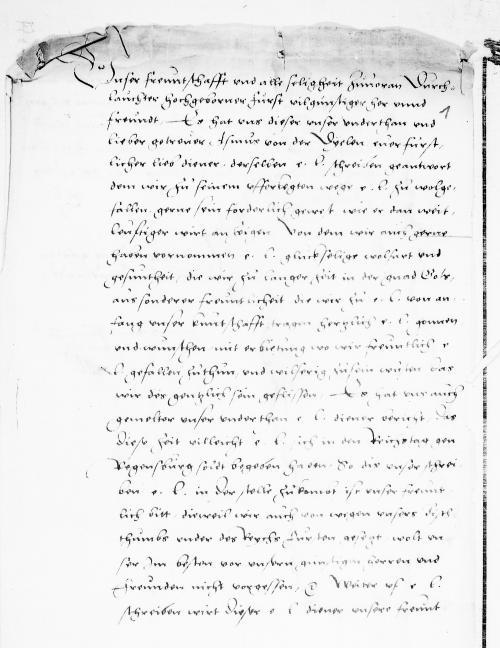 Unser freuntschafft und alle seligkeit zuvoran Durch-
lauchter hochgeborner Furst vilgunstiger her unnd
freundt. Es hat uns dieser unser underthan und
lieber getreuer, Asmus von der Wselen euer furst-
licher lieb diener, derselben e. l. schreiben geantwort
dem wir zu seinem uffertegten wege e. l. zu wolge-
fallen gerne sein forderlich gewest wie er dan weit-
leufftiger wirt anzeigen. Von dem wir auch gerne
haben vernommen e. l. gluckselige wolfart und
gesuntheit, die wir zu langer zeit in der gnad Gots,
aus sonderer freuntlicheit die wir zu e. l. von an-
fang unser kuntschafft tragen hertzlich e. l. gonnen
und wunschen mit erbietung wo wir freuntlich e
l. gefallen zuthun und wilferig zusein wusten das
wir des gentzlich sein geflissen. Es hat uns auch
gemelter unser underthan e. l. diener bericht, das
diese zeit villeicht e. l. sich in den Reichstag gen
Regensburg soldt begeben haben. So die unser schrei
ben e. l. in der stelle zukomet ist unser freunt-
lich bitt, dieweil wir auch von wegen unsers
thumbs under des Reichs Fursten gesagt, wolt un
ser im besten vor unsern gunstigen herren und
freunden nicht vorgessen, Weiter uf e. l.
schreiben wirt dieser e. l. diener unsere freunt
1